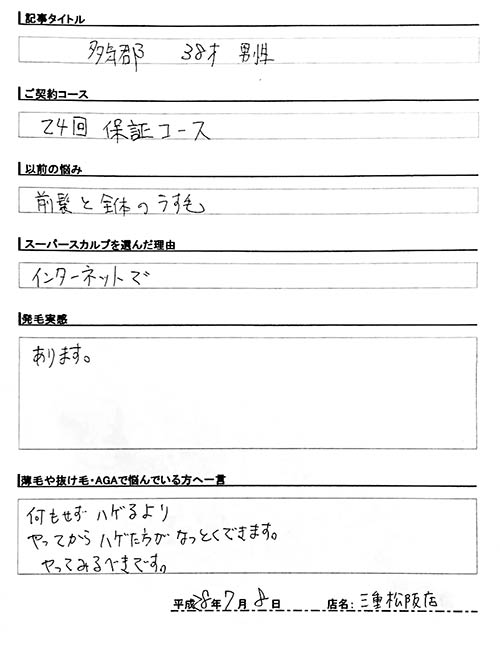 記事タイトル
多気郡 38才 男性
ご契約コース
24回 保証コース
以前の悩み
前髪と全体のうす毛
スーパースカルプを選んだ理由
インターネットで
発毛実感
あります。
薄毛や抜け毛・AGAで悩んでいる方へ一言
何もせず ハゲるより
やってから ハゲた方が なっとくできます。
やってみるべきです。
平成28年7月8日 店名: 三重松阪店